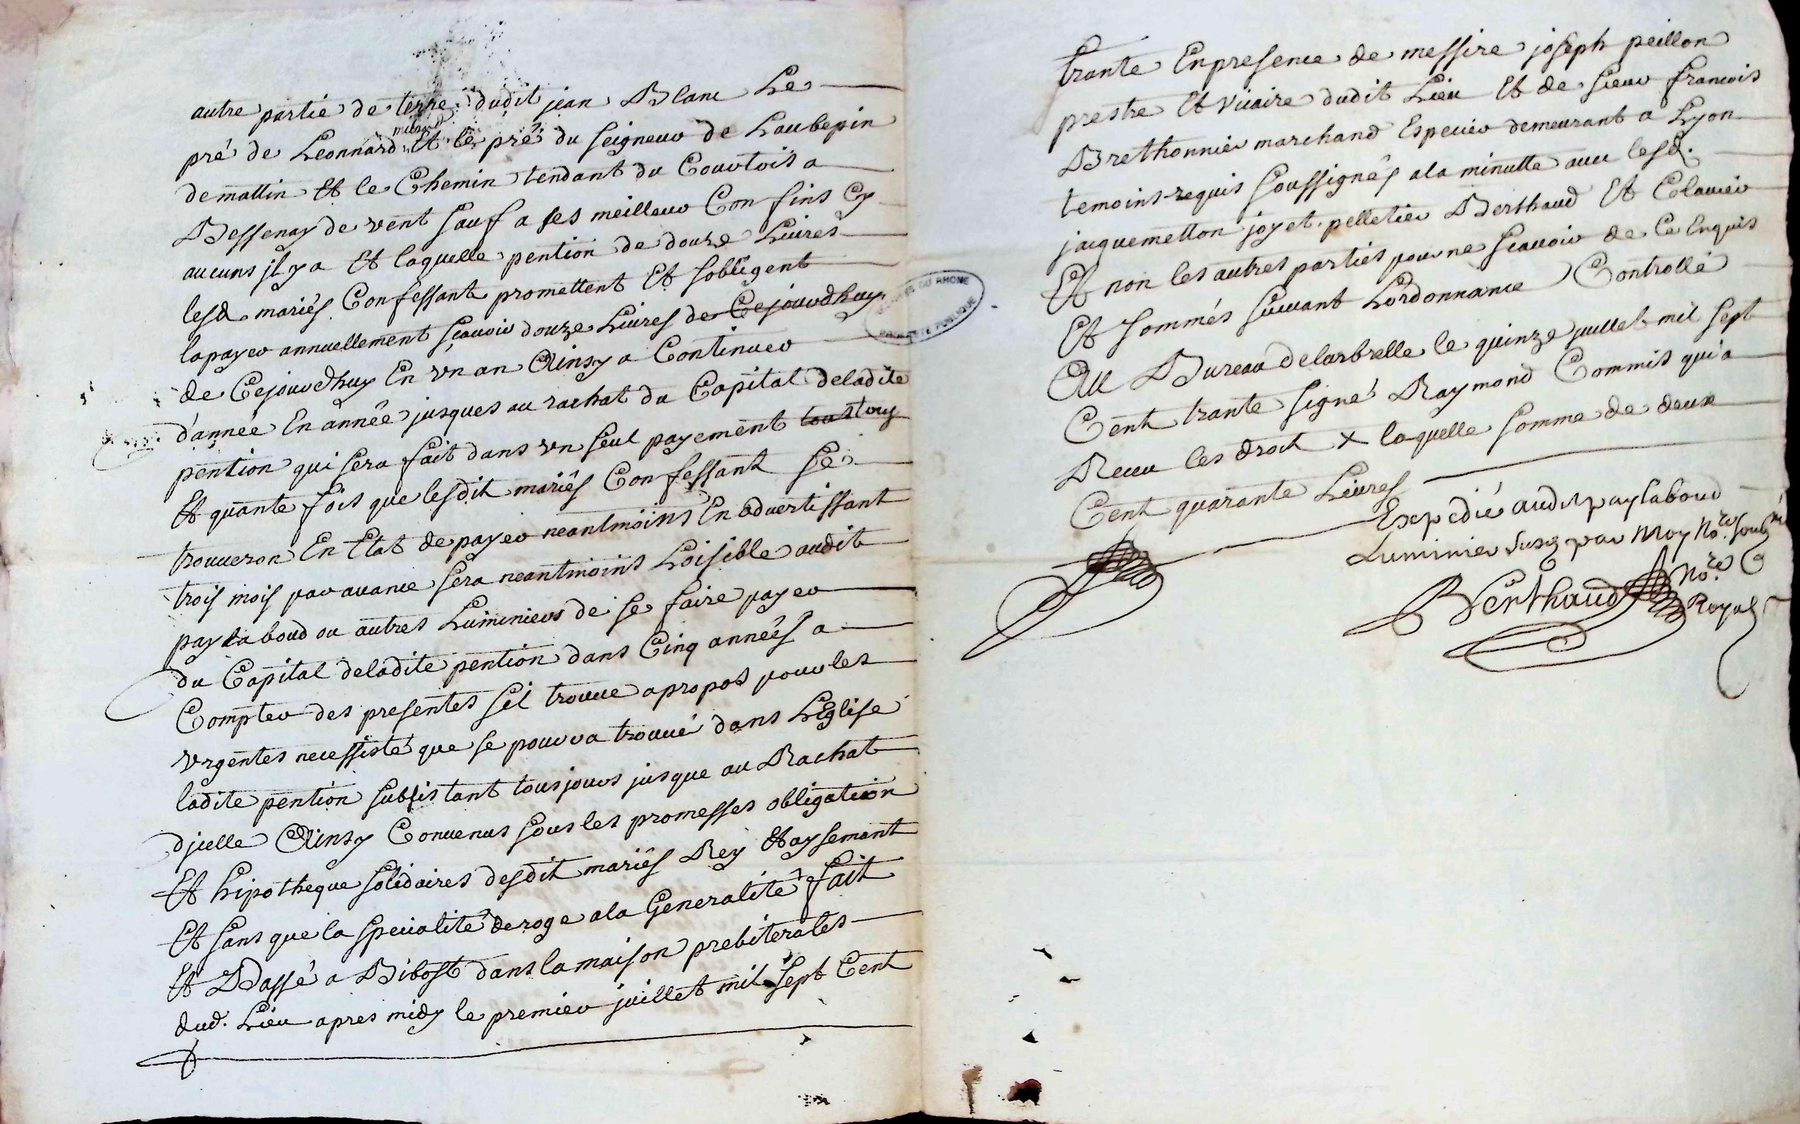 autre partie de terre dudit jean Blanc Le
pré de Leonnard Et le pré du seigneur de Laubepin
de mattin Et le Chemin tendant du Courtois a
Bessenay de vent sauf a ses meilleur Confins sy
aucuns jl y a Et laquelle pention de douze Livres
lesd. mariés Confessant promettent Et sobligent
la payer annuellement scavoir douze Livres de Cejourdhuy
de Cejourdhuy En vn an Ainsy a Continuer
dannée En année jusques au rachat du Capital deladite
pention qui sera fait dans vn seul payement toutes
Et quante fois que lesdit mariés Confessant se
trouveron En Etat de payer neantmoins En advertissant
trois mois par avance sera neantmoins Loisible audit
paylaboud ou autres Luminiers de se faire payer
du Capital deladite pention dans Cinq années a
Compter des presentes sil trouve apropos pour les
vrgentes necessisté que se pourra trouvé dans LEglise
ladite pention subsistant tousjours jusque au Rachat
djcelle Ainsy Convenus sous les promesses obligation
Et hipotheque solidaires desdit mariés Rey Et aysemant
Et sans que la specialité deroge ala Generalité fait
Et Passé a Bibost dans la maison prebiterales
dud. Lieu apres midy le premier juillet mil sept Cent
trante En presence de messire joseph peillon
prestre Et vicaire dudit Lieu Et de sieur francois
Brethonnier marchand Espicier demeurant a Lyon
temoins requis soussignés ala minutte avec lesd.
jacquemetton joyet pelletier Berthaud Et Clavier
Et non les autres parties pour ne scavoir de Ce Enquis
Et sommés suivant Lordonnance Controllé
Au Bureau delarbrelle le quinze juillet mil sept
Cent trante signé Raymond Commis qui a
Receu les droit x laquelle somme de deux
Cent quarante Livres
Expedié audit paylaboud
Luminier susd par Moy No.re sousné
Berthaud No.re
Royal